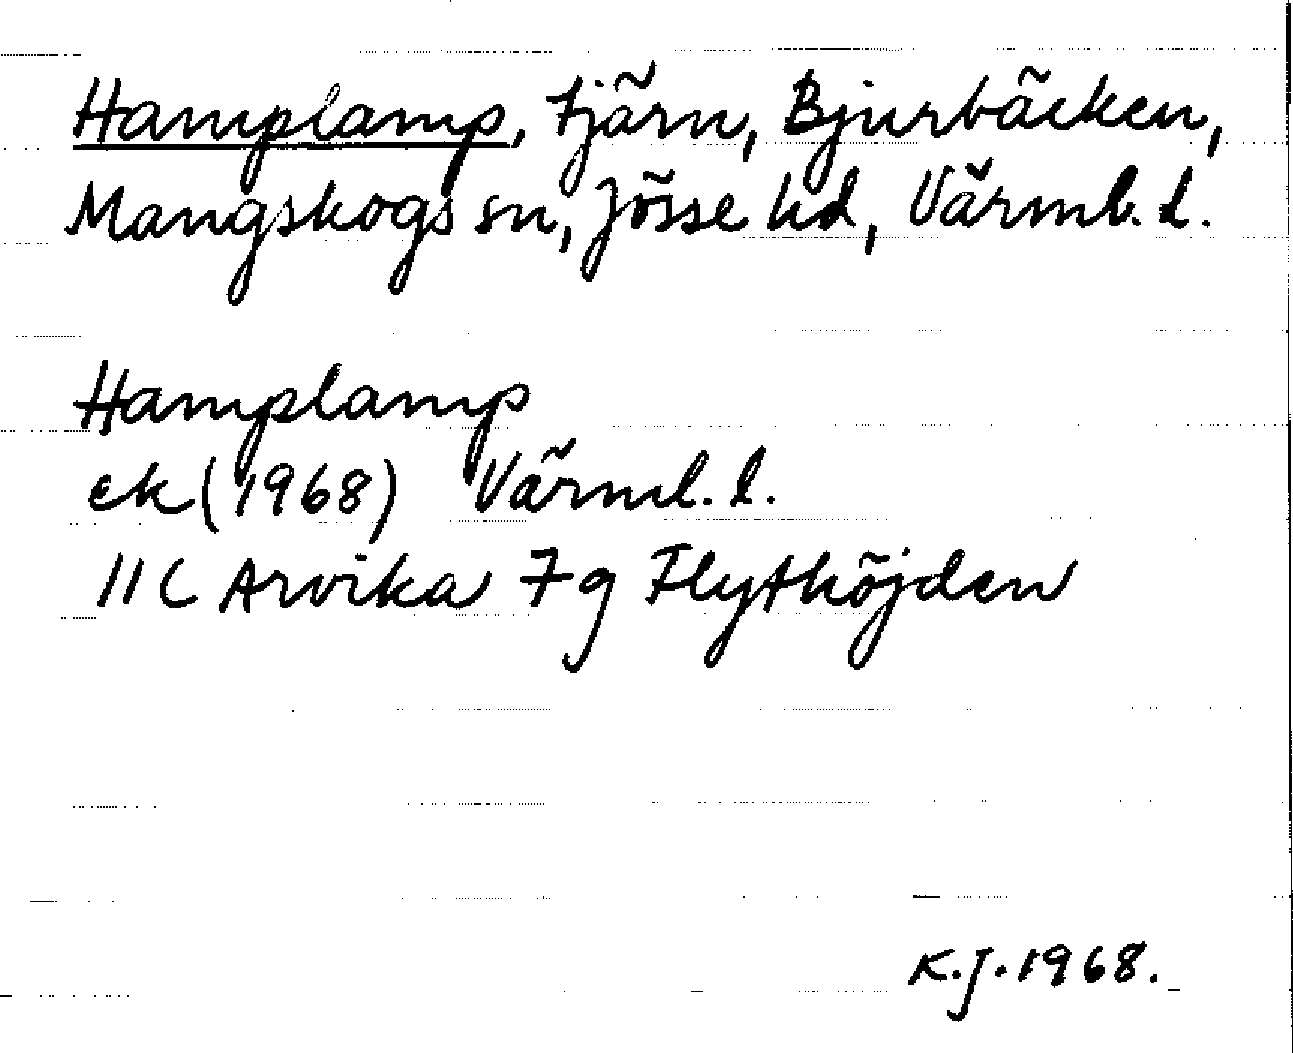 Hamplamp, tjärn, Bjurbäcken,
Mangskogs sn, Jösse hd, Värml. l.
Hamplamp
ek (1968) Värml. l.
11C Arvika 7g Flythöjden
K.J. 1968.